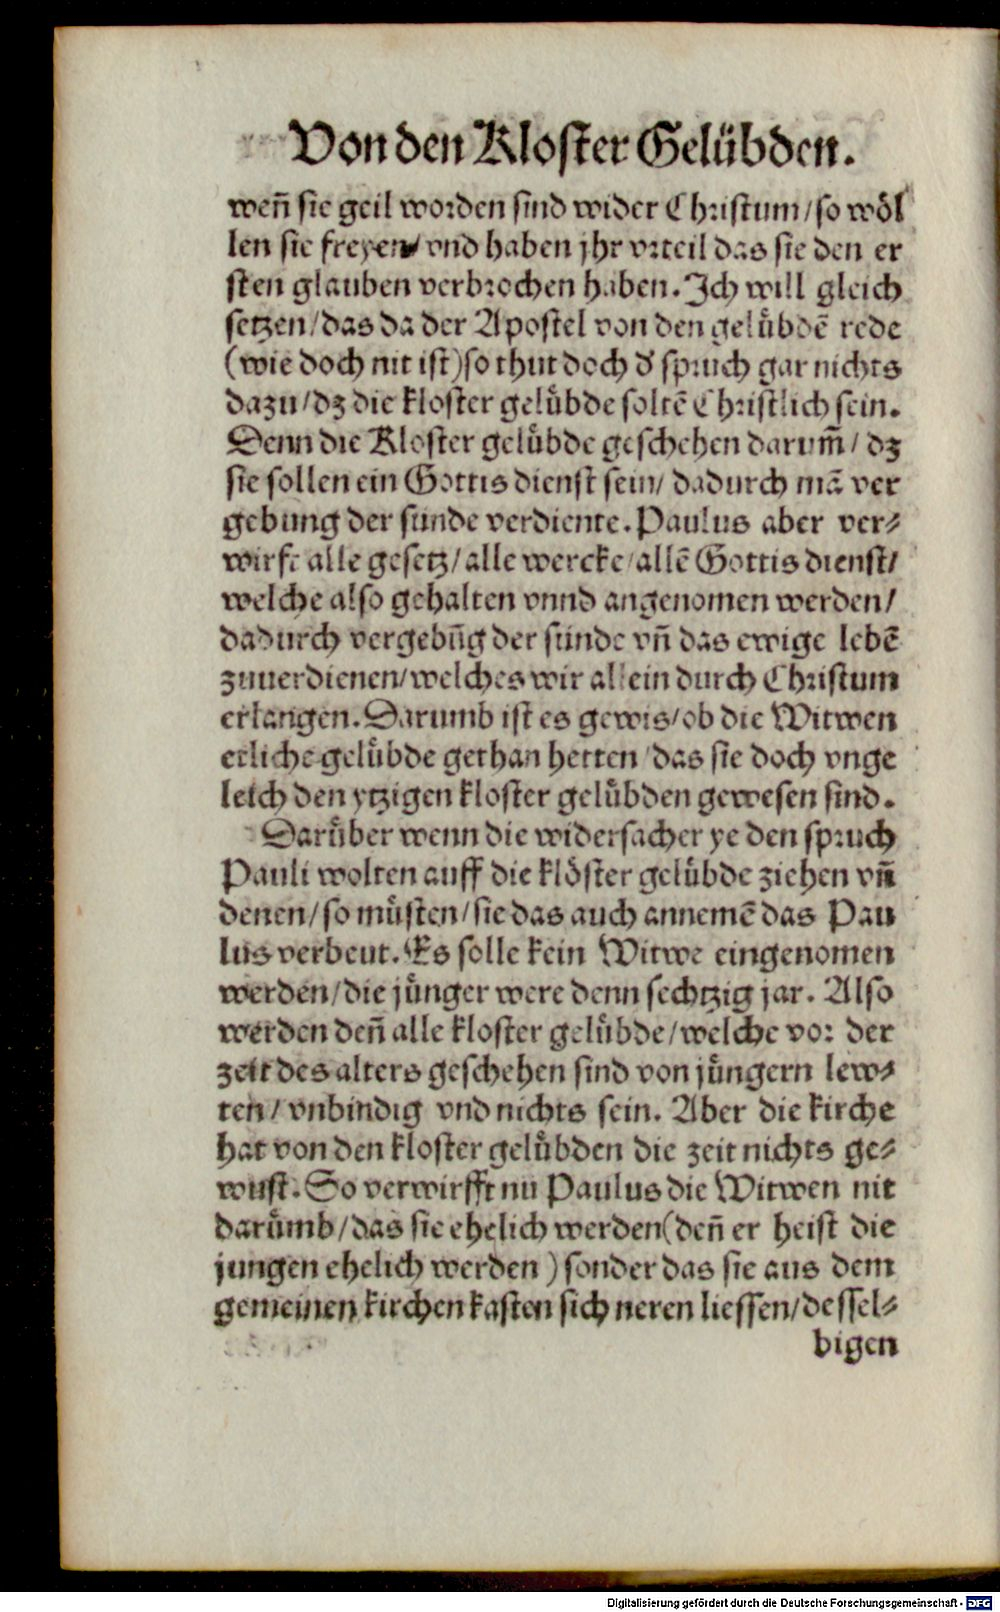 Von den Kloster Gelübden.
weñ sie geil worden sind wider Christum/so wöl
len sie freyen/vnd haben jhr vrteil das sie den er
sten glauben verbrochen haben. Ich will gleich
setzen/das da der Apostel von den gelübdē rede
(wie doch nit ist)so thut doch d' spruch gar nichts
dazu/dz die kloster gelübde soltē Christlich sein.
Denn die Kloster gelübde geschehen darum̃/ dz
sie sollen ein Gottis dienst sein/ dadurch mā ver
gebung der sunde verdiente. Paulus aber ver⸗
wirft alle gesetz/alle wercke/allē Gottis dienst/
welche also gehalten vnnd angenomen werden/
dadurch vergebūg der sünde vñ das ewige lebē
zuuerdienen/welches wir allein durch Christum
erlangen. Darumb ist es gewis/ob die Witwen
etliche gelübde gethan hetten/das sie doch vnge
leich den ytzigen kloster gelübden gewesen sind.
Darüber wenn die widersacher ye den spruch
Pauli wolten auff die klöster gelübde ziehen vñ
denen/so müsten/sie das auch annemē das Pau
lus verbeut. Es solle kein Witwe eingenomen
werden/die jünger were denn sechtzig jar. Also
werden deñ alle kloster gelübde/welche vor der
zeit des alters geschehen sind von jüngern lew⸗
ten/ vnbindig vnd nichts sein. Aber die kirche
hat von den kloster gelübden die zeit nichts ge⸗
wust. So verwirfft nu Paulus die Witwen nit
darümb/das sie ehelich werden(deñ er heist die
jungen ehelich werden) sonder das sie aus dem
gemeinen kirchen kasten sich neren liessen/dessel⸗
bigen
Digitalisierung gefördert durch die Deutsche Forschungsgemeinschaft - DFG